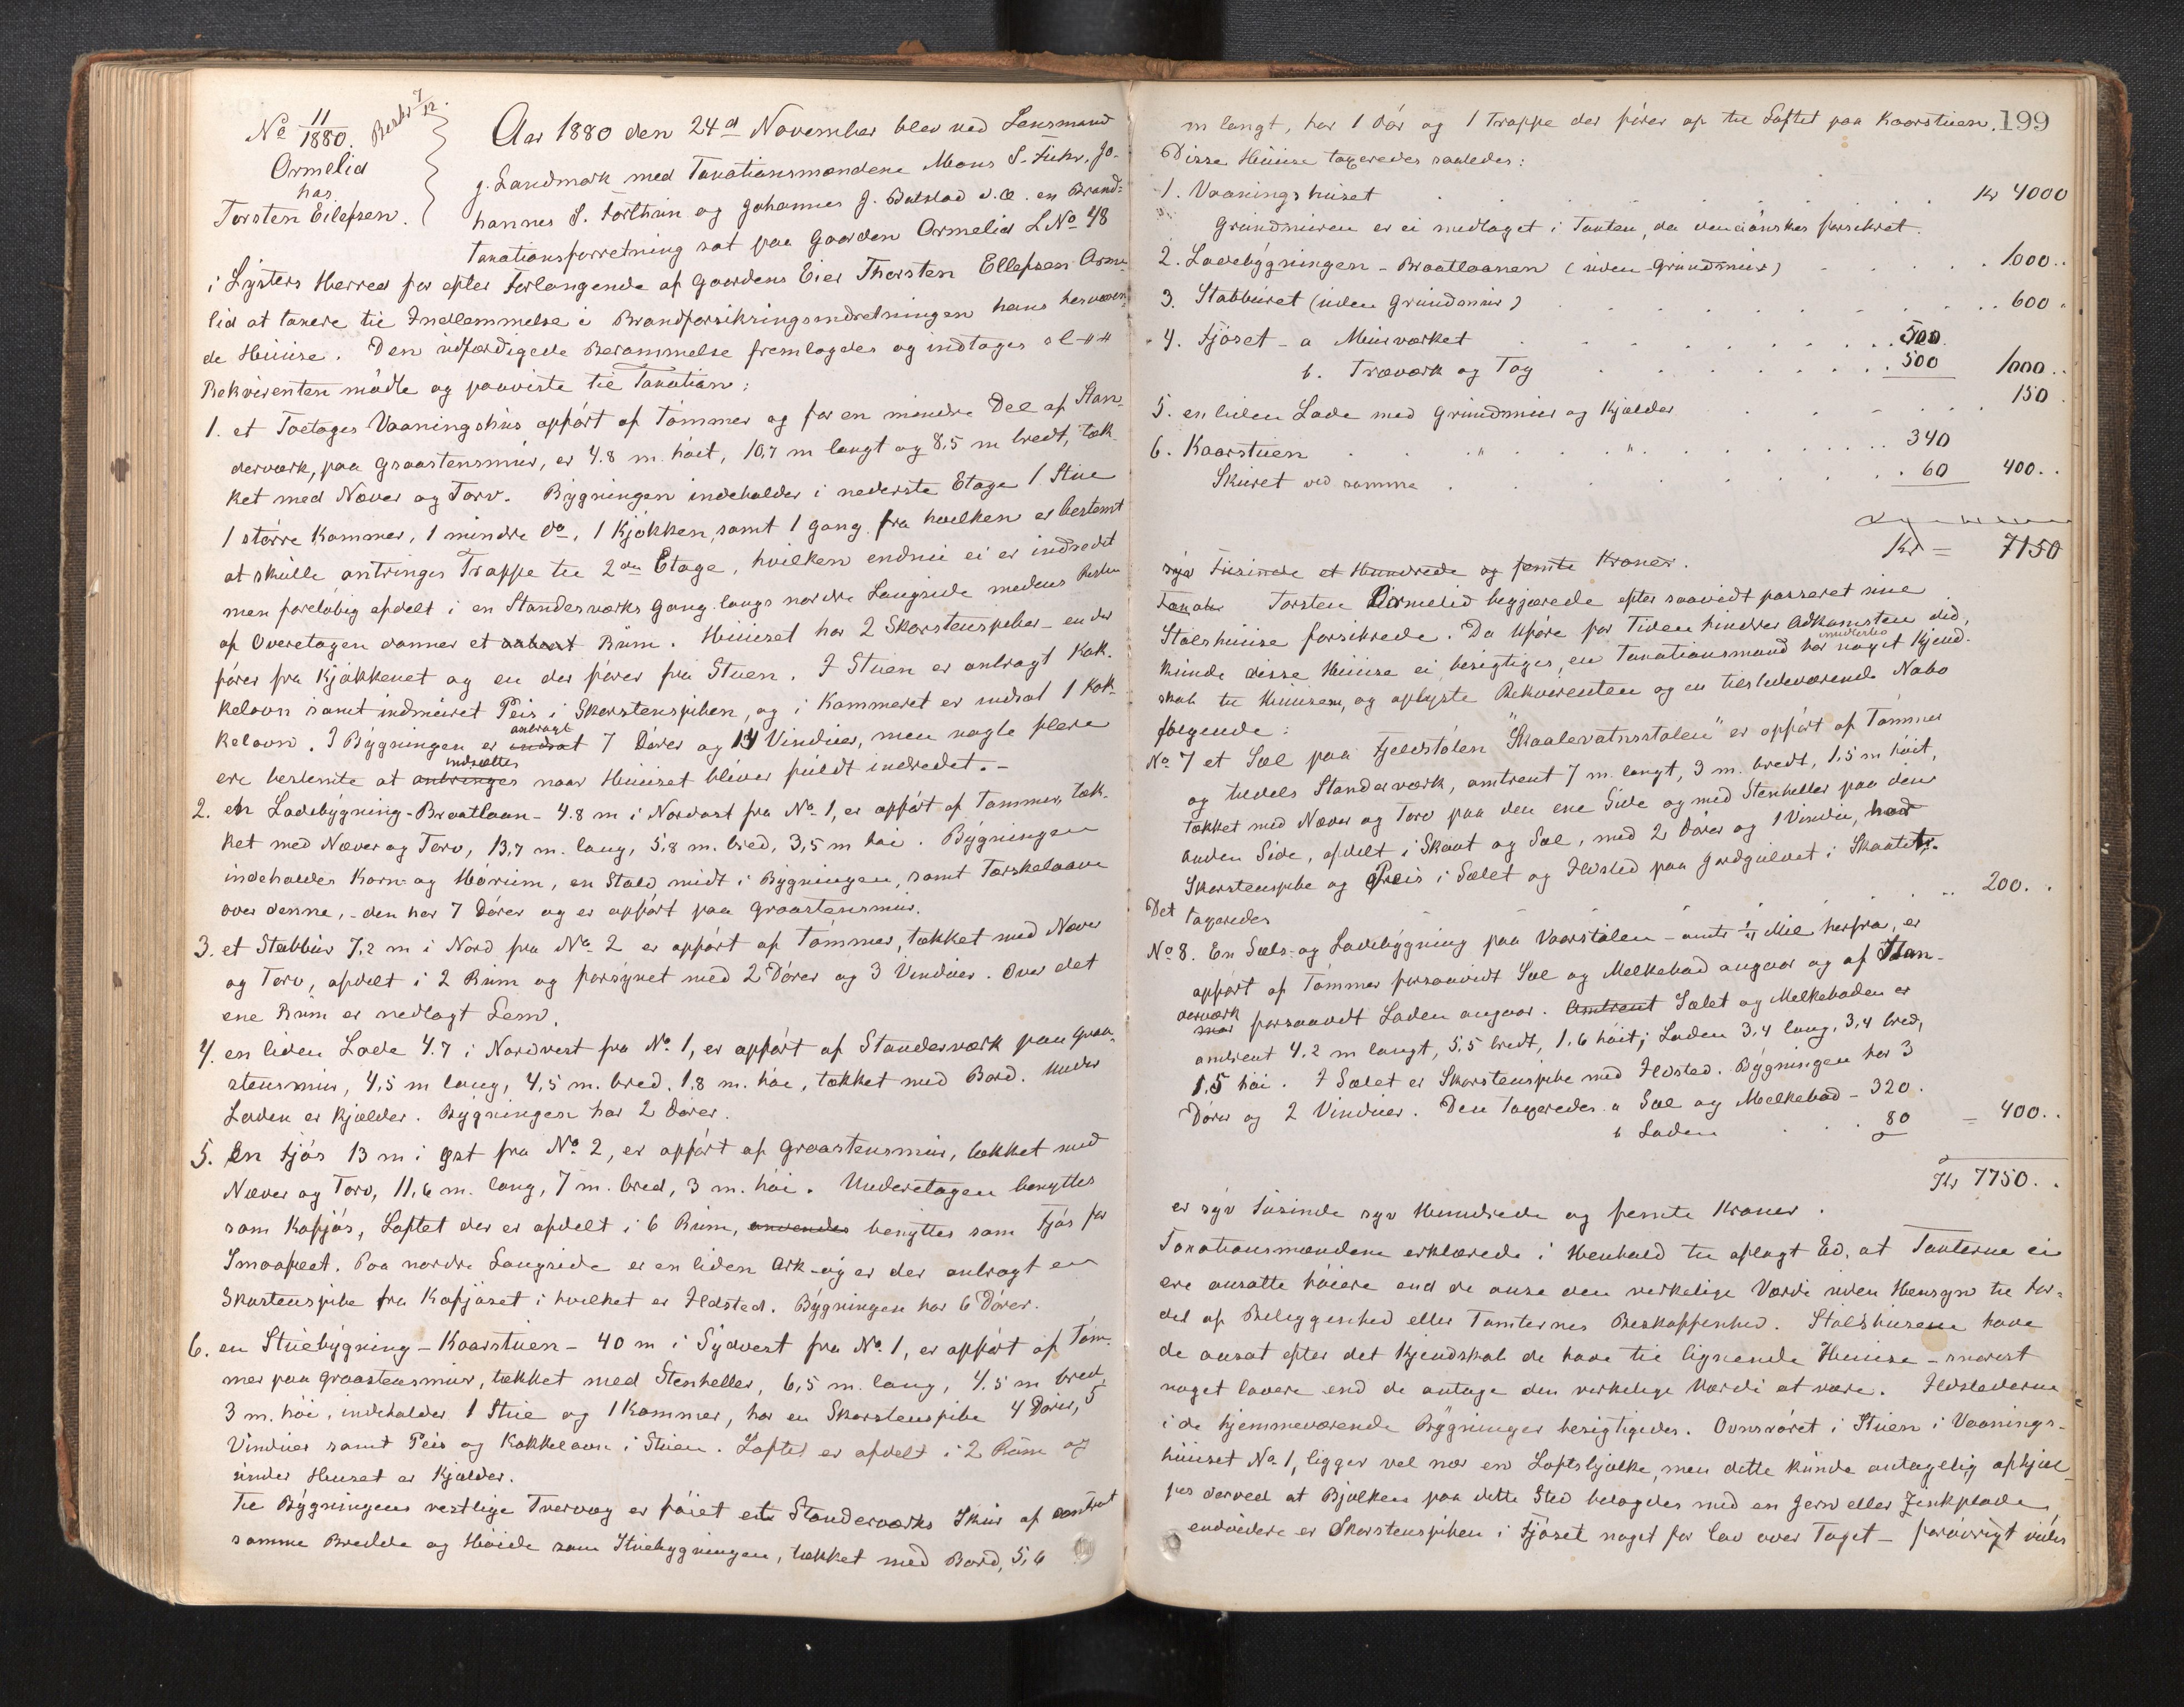 No 11/1880. Beskr 7/12.
Ormelid
hos
Torsten Eilefsen.
Aar 1880 den 24de November blev ved Lensmand
J. Landmark med Taxationsmændene Mons S. Fuhr, Jo-
hannes S. Forthun og Johannes J. Bolstad d.æ. en Brand-
taxationsforretning sat paa Gaarden Ormelid LNo 48
i Lysters Herred for efter Forlangende af Gaardens Eier Thorsten Ellefsen Orme-
lid at taxere til Indlemmelse i Brandforsikringsindretningen hans herværen-
de Huuse. Den udfærdigede Berammelse fremlagdes og indtages
Rekvirenten mødte og paaviste til Taxation:
1. et Toetages Vaaningshus opført af Tømmer og for en mindre Del af Stan-
derværk, paa Graastensmur, er 4.8 m. høit, 10,7 m langt og 8,5 m bredt, tæk-
ket med Næver og Torv. Bygningen indeholder i nederste Etage 1 Stue
1 større Kammer, 1 mindre do, 1 Kjøkken, samt 1 Gang fra hvilken er bestemt
at skulle anbringes Trappe til 2den Etage, hvilken endnu ei er indredet
men foreløbig afdelt i en Standerværks Gang langs nordre Langside medens Resten
af Overetagen danner et Rum. Huuset har 2 Skorstenspiber - en der
fører fra Kjøkkenet og en der fører fra Stuen. I Stuen er anbragt Kak-
kelovn samt indmuret Peis i Skorstenspiben, og i Kammeret er indsat 1 Kak-
kelovn. I Bygningen er indsat anbragt 7 Dører og 14 Vinduer, men nogle flere
ere bestemte at anbringes indsættes naar Huuset bliver fuldt indredet. -
2. en Ladebygning - Braatlaan - 4.8 m i Nordost fra No 1, er opført af Tømmer, tæk-
ket med Næver og Torv, 13,7 m. lang, 5,8 m. bred, 3,5 m høi. Bygningen
indeholder Korn- og Hørum, en Stald midt i Bygningen, samt Tærskelaave
over denne, - den har 7 Dører og er opført paa Graastensmur.
3. et Stabbur 7,2 m i Nord fra No 2 er opført af Tømmer, tækket med Næver
og Torv, afdelt i 2 Rum og forsynet med 2 Dører og 3 Vinduer. Over det
ene Rum er nedlagt Lem.
4. en liden Lade 4.7 i Nordvest fra No 1, er opført af Standerværk paa Graa-
stensmur, 4,5 m lang, 4,5 m. bred, 1,8 m. høi, tækket med Bord. Under
Laden er Kjælder. Bygningen har 2 Dører.
5. En Fjøs 13 m i Øst fra No 2, er opført af Graastensmur, tækket med
Næver og Torv, 11,6 m. lang, 7 m. bred, 3 m. høi. Underetagen benyttes
som Kofjøs, Loftet der er afdelt i 6 Rum, anvendes benyttes som Fjøs for
Smaafeet. Paa nordre Langside er en liden Ark - og er der anbragt en
Skorstenspibe fra Kofjøset i hvilket er Ildsted. Bygningen har 6 Dører.
6. en Stuebygning - Kaarstuen - 40 m i Sydvest fra No 1, er opført af Tøm-
mer paa Graastensmur, tækket med Stenheller, 6,5 m. lang, 4.5 m bred,
3 m. høi, indeholder 1 Stue og 1 Kammer, har en Skorstenspibe 4 Dører, 5
Vinduer samt Peis og Kakkelovn i Stuen. Loftet er afdelt i 2 Rum og
under Huuset er Kjælder.
Til Bygningens vestlige Tvervæg er føiet et Standerværks Skur af omtrent
samme Bredde og Høide som Stuebygningen, tækket med Bord, 5,6
199
m langt, har 1 Dør og 1 Trappe der fører op til Loftet paa Kaarstuen.
Disse Huuse taxeredes saaledes:
1. Vaaningshuset Kr 4000
Grundmuren er ei medtaget i Taxten, da den ei ønskes forsikret.
2. Ladebygningen - Braatlaanen (uden Grundmur) 1000..
3. Stabburet (uden Grundmur) 600.
4. Fjøset - a Murværket 500
b. Træværk og Tag 500 1000..
5. en liden Lade med Grundmur og Kjælder 150
6. Kaarstuen 340
Skuret ved samme 60 400..
Kr = 7150
syv Tusinde et Hundrede og femti Kroner.
Torsten Ormelid begjærede efter saavidt passeret sine
Stølshuuse forsikrede. Da Uføre for Tiden hindrer Adkomsten did,
kunde disse Huuse ei besigtiges, en Taxationsmand har imidlertid noget Kjend-
skab til Huusene, og oplyste Rekvirenten og en tilstedeværende Nabo
følgende:
No 7 et Sæl paa Fjeldstølen "Skaalevatnsstølen" er opført af Tømmer
og tildels Standerværk, omtrent 7 m. langt, 3 m. bredt, 1,5 m høit,
tækket med Næver og Torv paa den ene Side og med Stenheller paa den
anden Side, afdelt i Skaat og Sæl, med 2 Dører og 1 Vindu,
Skorstenspibe og Peis i Sælet og Ildsted paa Jordgulvet i Skaatet.
Det taxeredes 200..
No 8. En Sæls- og Ladebygning paa Vaarstølen - omtr 1/4 Mil herfra, er
opført af Tømmer forsaavidt Sæl og Melkebod angaar og af Stan-
derværk forsaavidt Laden angaar. Omtrent Sælet og Melkeboden er
omtrent 4.2 m langt, 5,5 bredt, 1.6 høit; Laden 3,4 lang, 3,4 bred,
1,5 høi. I Sælet er Skorstenspibe med Ildsted. Bygningen har 3
Dører og 2 Vinduer. Den taxeredes a Sæl og Melkebod - 320.
b Laden 80 = 400..
Kr 7750..
er syv Tusinde syv Hundrede og femti Kroner.
Taxationsmændene erklærede i Henhold til aflagt Ed, at Taxterne ei
ere ansatte høiere end de anse den virkelige Værdi uden Hensyn til For-
del af Beliggenhed eller Tomternes Beskaffenhed. Stølshusene have
de ansat efter det Kjendskab de have til lignende Huuse - snarest
noget lavere end de antage den virkelige Værdi at være. Ildstederne
i de hjemmeværende Bygninger besigtigedes. Ovnsrøret i Stuen i Vaanings-
huuset No 1, ligger vel nær en Loftsbjælke, men dette kunde antagelig afhjæl-
pes derved at Bjælken paa dette Sted belagdes med en Jern eller Zinkplade,
endvidere er Skorstenspiben i Fjøset noget for lav over Taget - forøvrigt vides